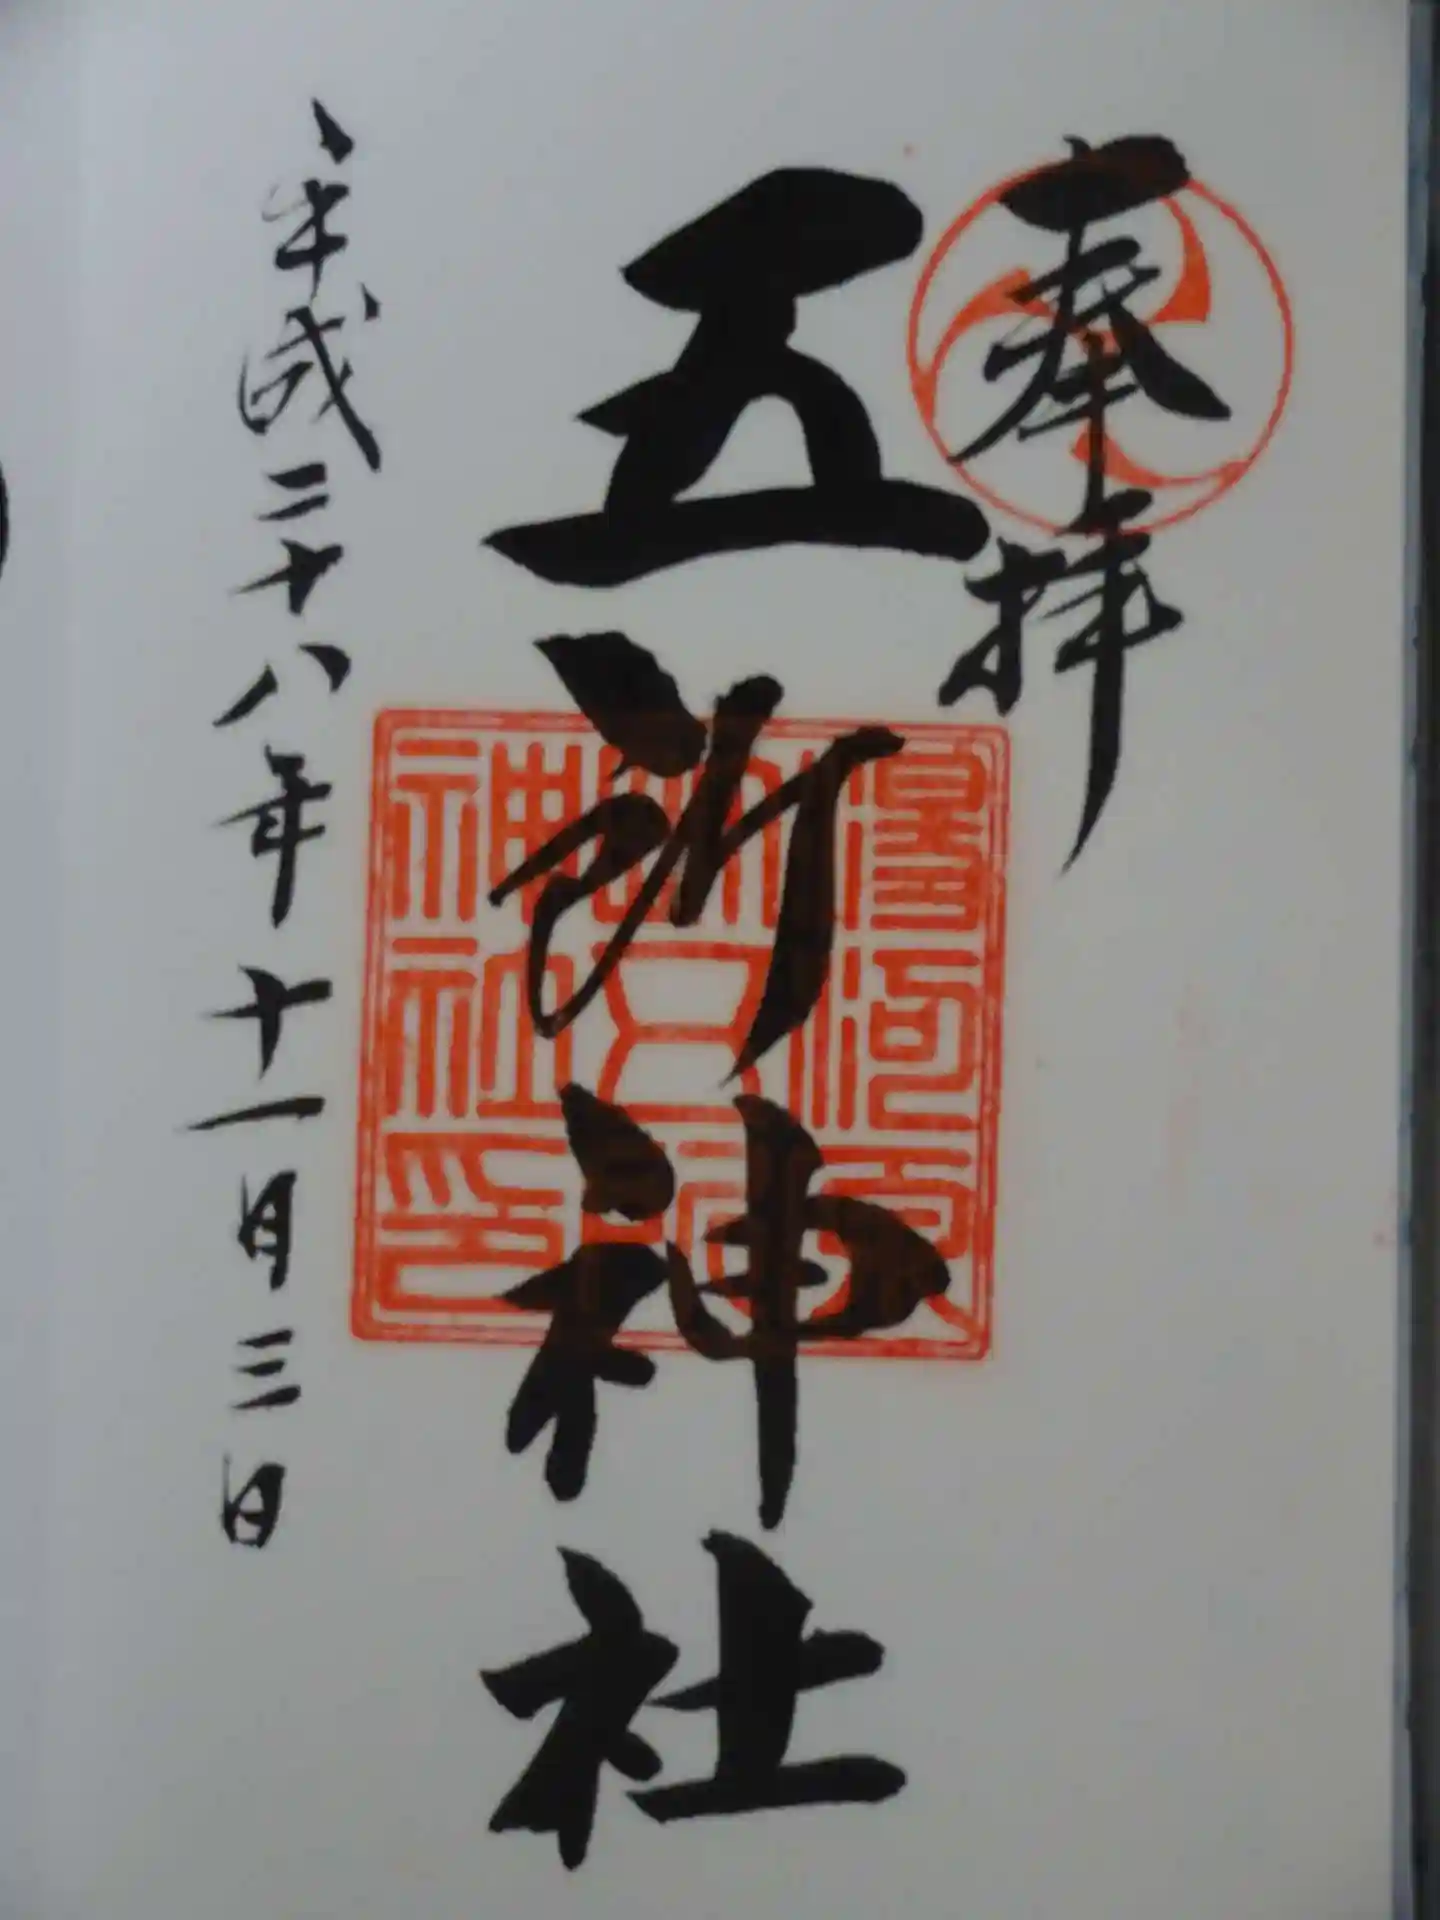 奉拝
五所神社
湯河原
五所
神社印
平成二十八年十一月三日